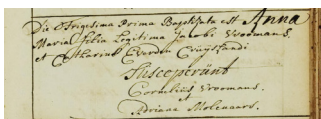 Die Trigesima Prima Baptizata est Anna
Maria filia Legitima Jacobi Vroomans
et Catharina Everdon Cruysfandi
Susceperünt
Cornelius Vroomans
et
Adriana Molenaars.